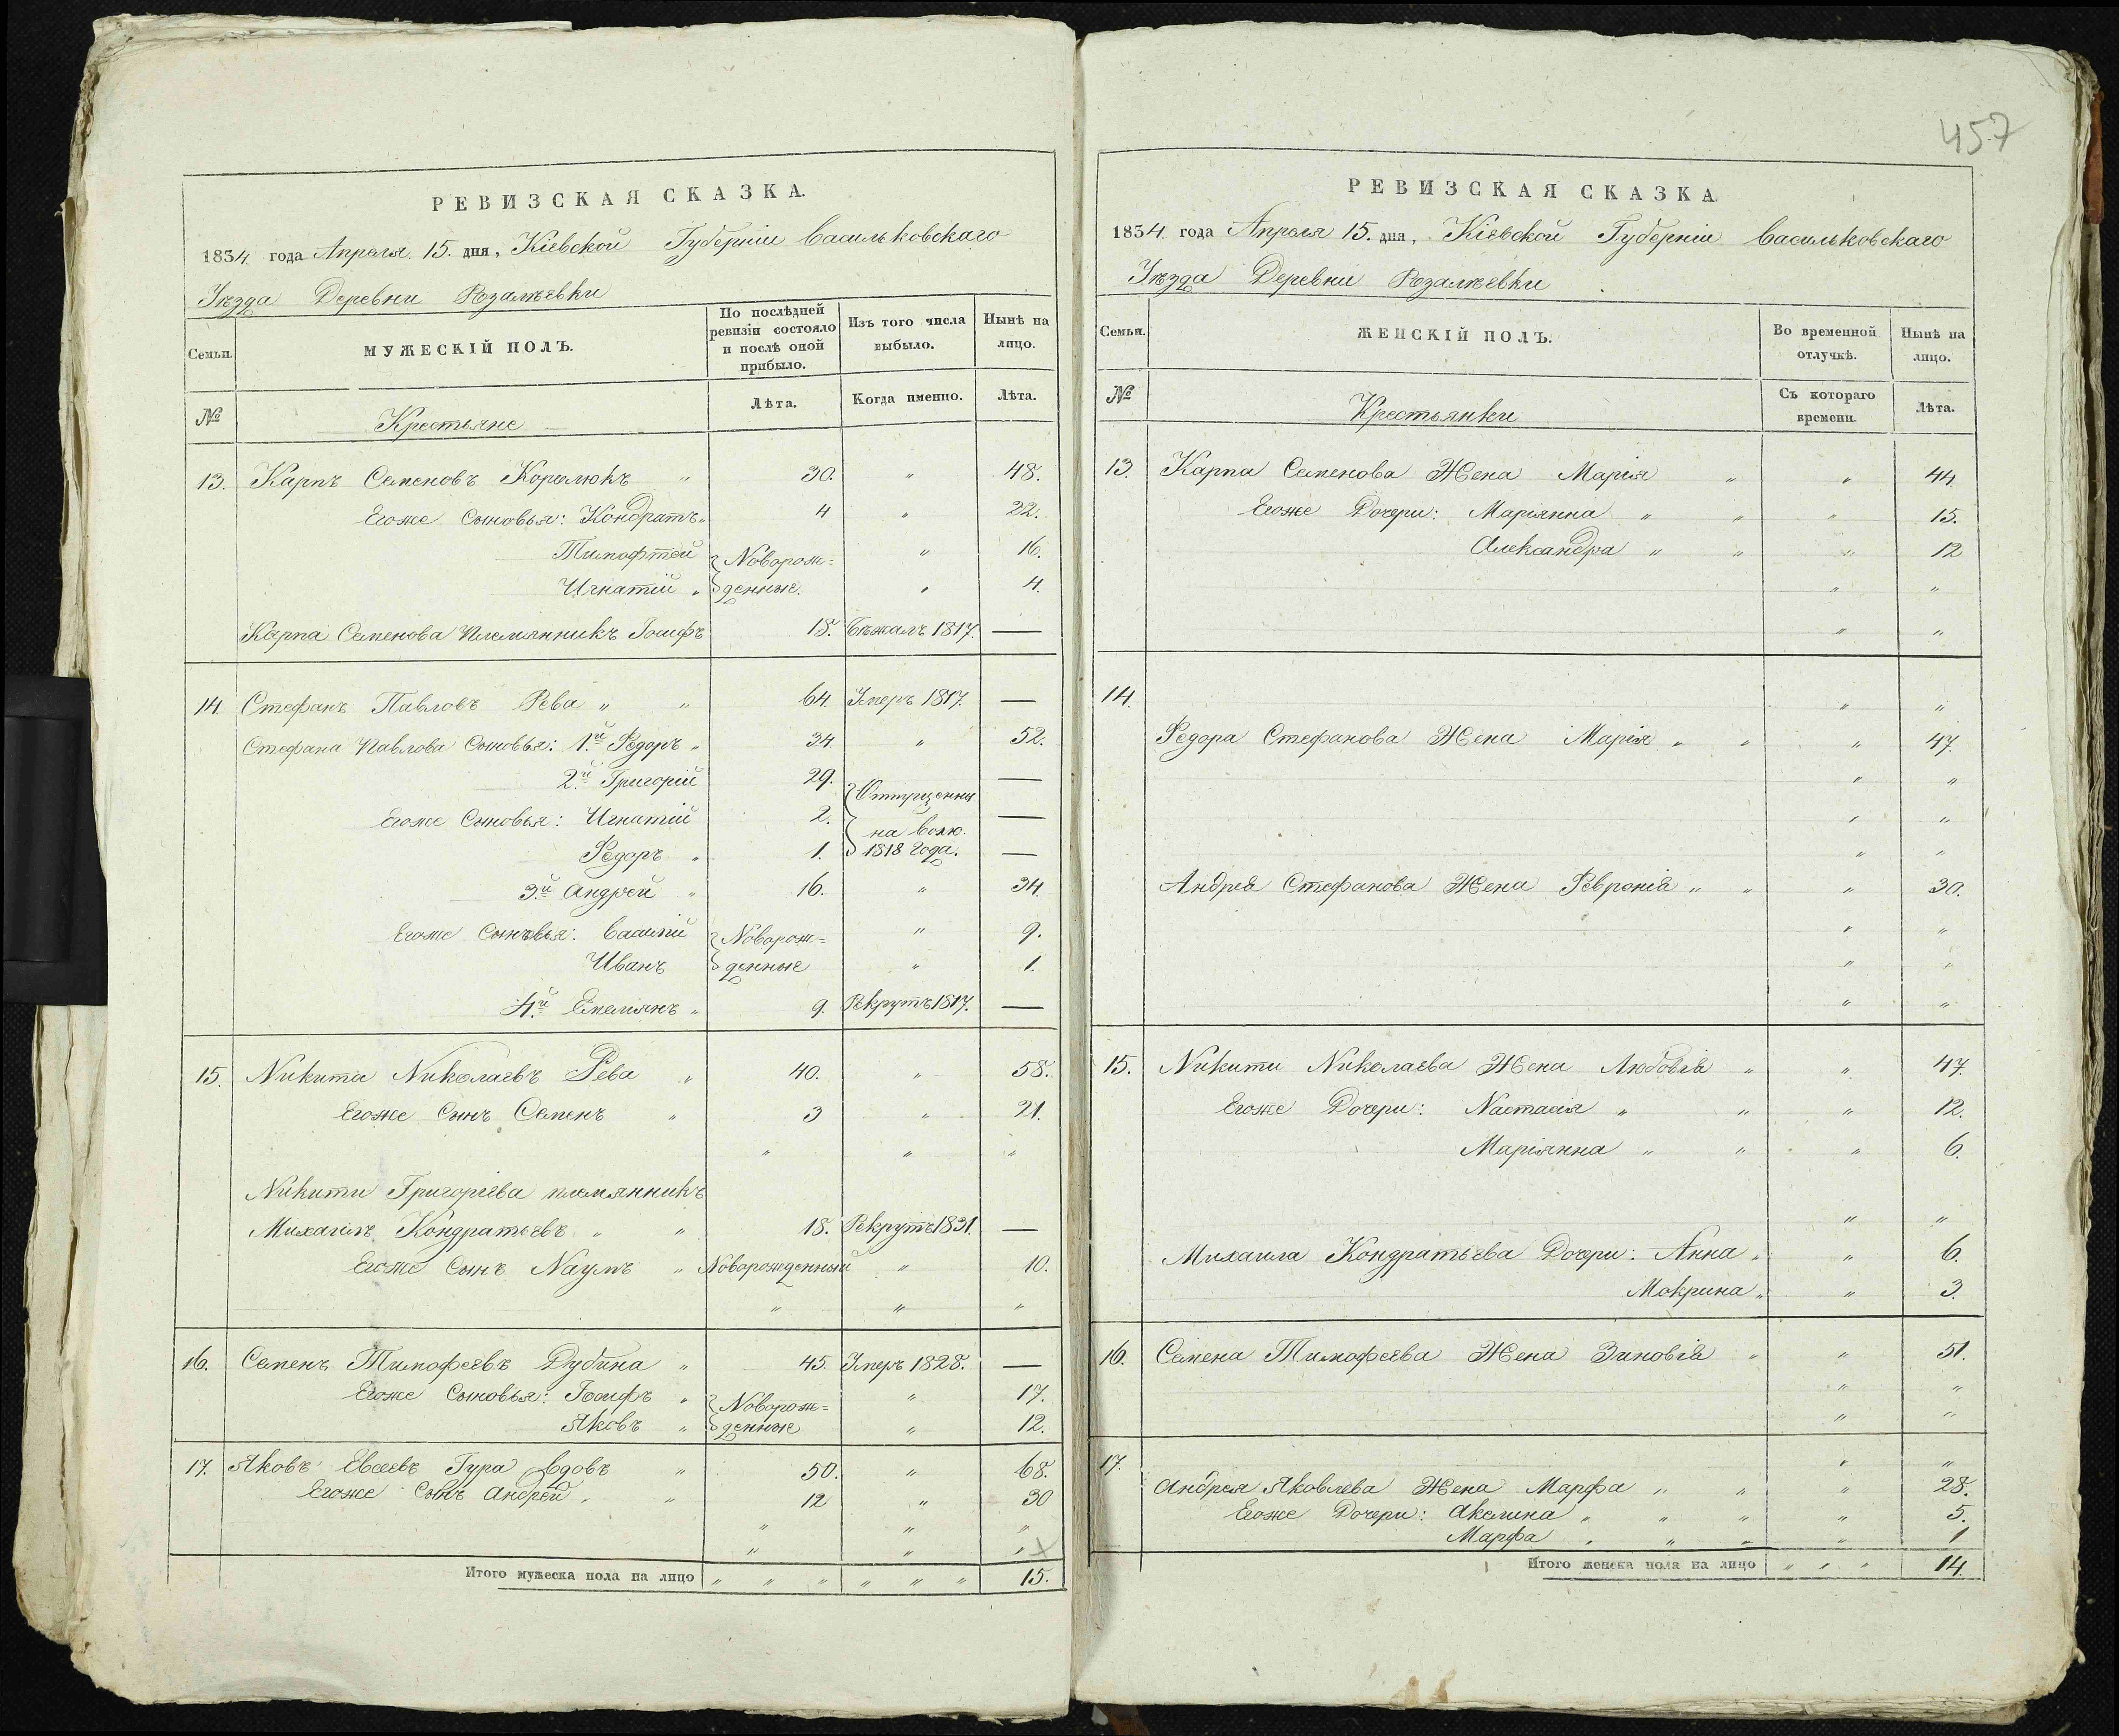 457
РЕВИЗСКАЯ СКАЗКА.
1834 года Апреля 15. дня, Кіевской Губерніи Васильковскаго
Уѣзда Деревни Розалѣевки
Семьи.
МУЖЕСКІЙ ПОЛЪ.
По послѣдней ревизіи состояло и послѣ оной прибыло.
Изъ того числа выбыло.
Нынѣ на лицо.
№ Крестьяне Лѣта. Когда именно. Лѣта.
13. Карпъ Семеновъ Королюкъ " 30. " 48.
Егоже Сыновья: Кондратъ " 4 " 22.
Тимофтей } Новорож= " 16.
Игнатій " } денные. " 4.
Карпа Семенова племянникъ Іосифъ 18. Бѣжалъ 1817. —
14. Стефанъ Павловъ Рева " " 64. Умеръ 1817. —
Стефана Павлова Сыновья: 1.й Федоръ " 34. " 52.
2.й Григорій 29. —
Егоже Сыновья: Игнатій 2. } Отпущенны на волю. —
Федоръ " 1. } 1818 года. —
3.й Андрей " 16. " 34.
Егоже Сыновья: Василій } Новорож= " 9.
Иванъ } денные " 1.
4.й Емелянъ " 9. Рекрутъ 1817. —
15. Никита Николаевъ Рева " 40. " 58.
Егоже Сынъ Семенъ " 3 " 21.
" " "
Никити Григоріева племянникъ
Михаилъ Кондратьевъ " " 18. Рекрутъ 1831. —
Егоже Сынъ Наумъ " Новорожденный " 10.
" " "
16. Семенъ Тимофеевъ Дубина " 45. Умеръ 1828. —
Егоже Сыновья: Іосифъ " } Новорож= " 17.
Яковъ " } денные " 12.
17. Яковъ Евсеевъ Гура вдовъ " 50. " 68.
Егоже Сынъ Андрей " " 12 " 30
" " "
" " "
Итого мужеска пола на лицо " " " " " " 15.
РЕВИЗСКАЯ СКАЗКА.
1834 года Апреля 15. дня, Кіевской Губерніи Васильковскаго
Уѣзда Деревни Розалѣевки
Семьи.
ЖЕНСКІЙ ПОЛЪ.
Во временной отлучкѣ.
Нынѣ на лицо.
№ Крестьянки Съ котораго времени. Лѣта.
13. Карпа Семенова Жена Марія " " 44.
Егоже Дочери: Маріянна " " " 15.
Александра " " " 12
" "
" "
14. " "
Федора Стефанова Жена Марія " " " 47.
" "
" "
" "
Андрея Стефанова Жена Февронія " " " 30.
" "
" "
" "
15. Никити Николаева Жена Любовія " " 47.
Егоже Дочери: Настасія " " " 12.
Маріянна " " " 6.
" "
Михаила Кондратьева Дочери: Анна " " 6.
Мокрина " " 3.
16. Семена Тимофеева Жена Зиновія " " 51.
" "
" "
17. " "
Андрея Яковлева Жена Марфа " " " 28.
Егоже Дочери: Акелина " " " " 5.
Марфа " " " " 1
Итого женска пола на лицо " " " 14.